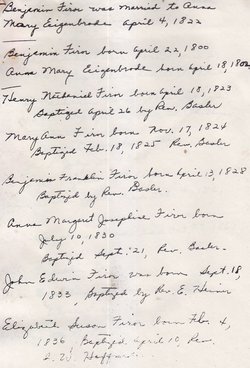 Benjamin Firor was married to Anna
Mary Eigenbrode April 4, 1822
Benjamin Firor born April 22, 1800
Anna Mary Eigenbrode born April 18, 1802
Henry Nathaniel Firor born April 18, 1823
Baptized April 26 by Rev. Basler
Mary Ann Firor born Nov. 17, 1824
Baptized Feb. 18, 1825 Rev. Basler
Benjamin Franklin Firor born April 13, 1828
Baptized by Rev. Basler.
Anna Margaret Josephine Firor born
July 10, 1830
Baptized Sept. 21, Rev. Basler.
John Edwin Firor was born Sept. 18,
1833, Baptized by Rev. E. Heiner
Elizabeth Susan Firor born Feb. 4,
1836, Baptized April 10, Rev.